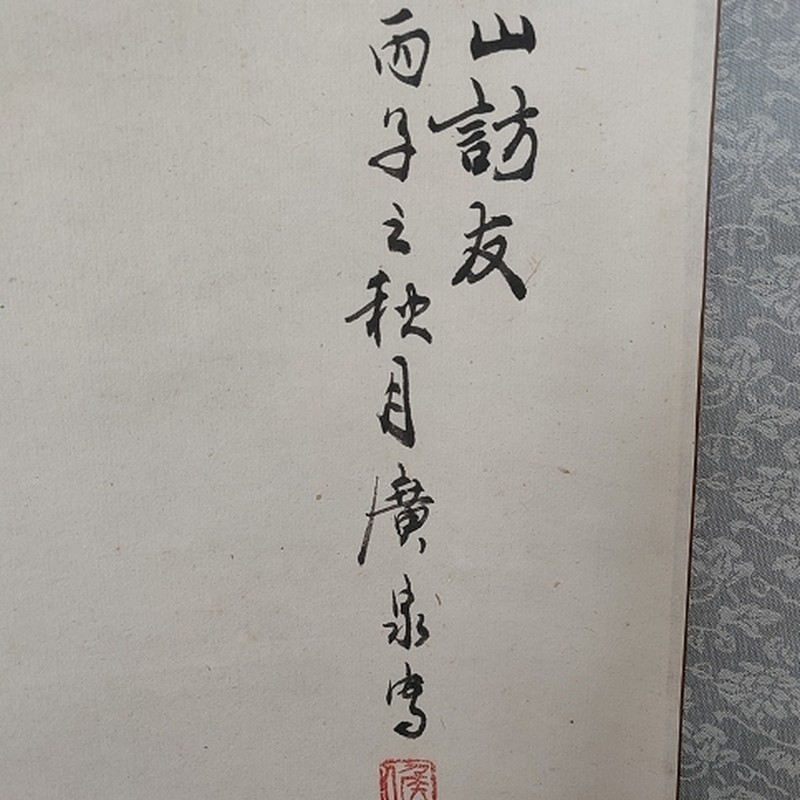 山訪友
丙子之秋月廣泉寫